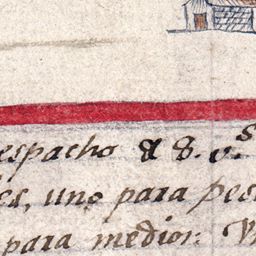 espacho a S. S.
es, uno para pes
para medior: V